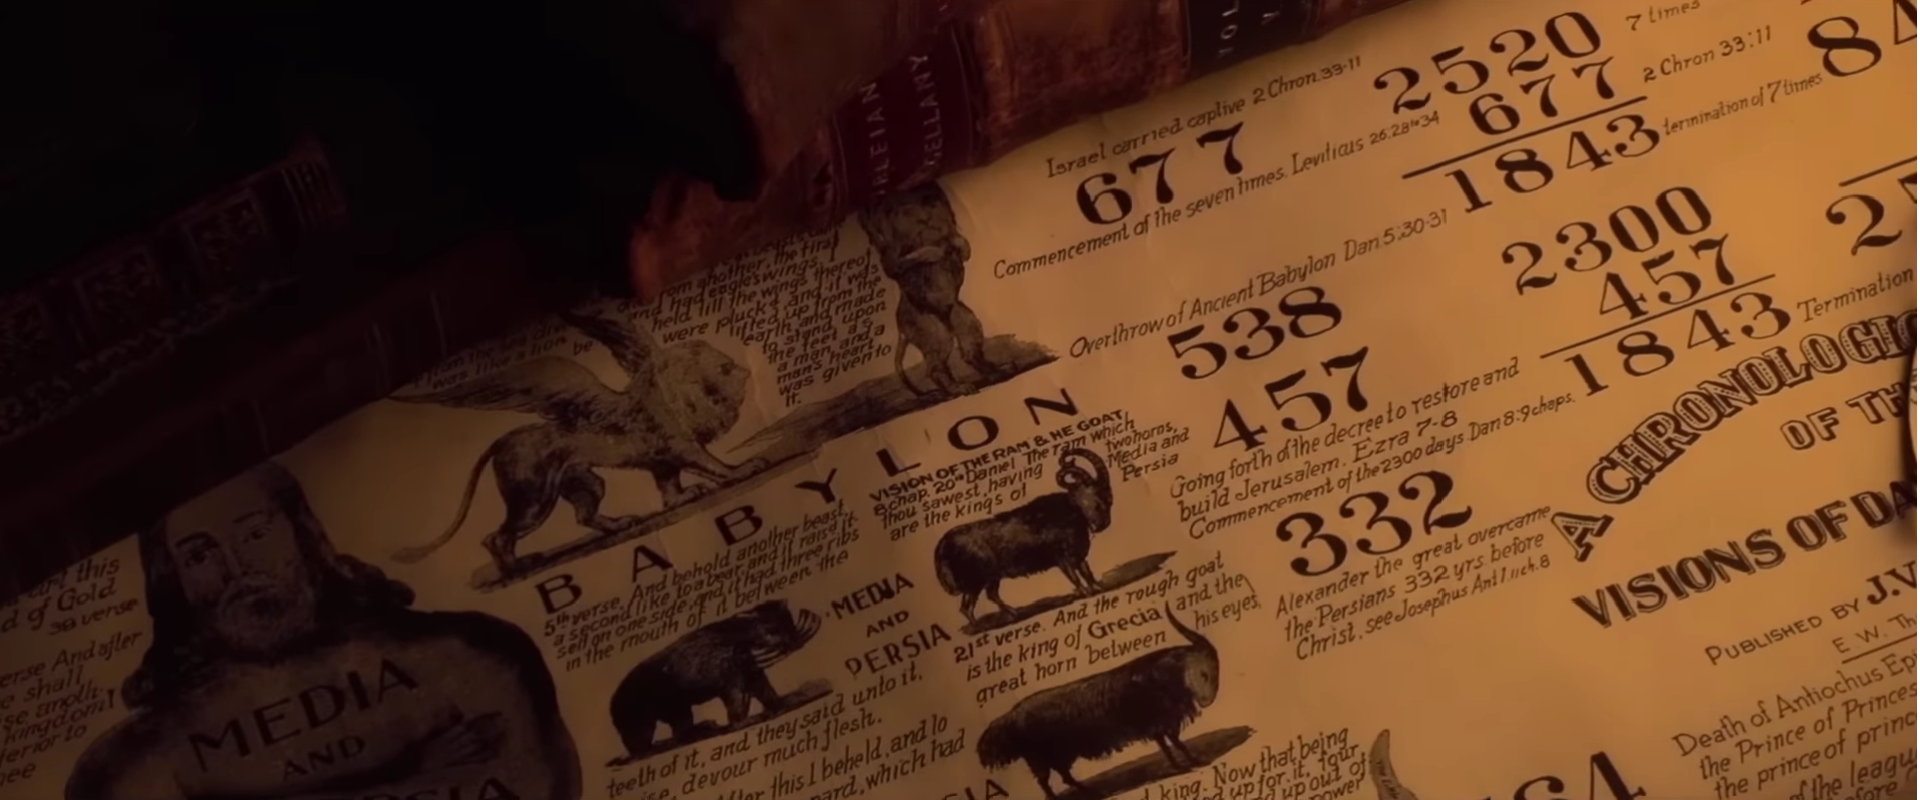 Israel carried captive 2 Chron. 33-11
677
Commencement of the seven times. Leviticus 26.28 to 34
2520
7 times
677
2 Chron 33:11
1843
termination of 7 times
84
Overthrow of Ancient Babylon Dan 5:30-31
538
457
Going forth of the decree to restore and
build Jerusalem. Ezra 7-8
Commencement of the 2300 days Dan 8:9 chaps.
2300
457
1843
Termination
332
Alexander the great overcame
the Persians 332 yrs. before
Christ. see Josephus
A CHRONOLOGIC
OF TH
VISIONS OF DA
PUBLISHED BY J.V.
E. W. Th
Death of Antiochus Epi
the Prince of Princes
the prince of princ
of the leagu
had eagles wings. I
held till the wings thereof
were pluckd, and it was
lifted up from the
earth, and made
to stand upon
the feet as
a man, and a
man's heart
was given to
it.
was like a lion
BABYLON
VISION OF THE RAM & HE GOAT
chap. 20th Daniel The ram which
thou sawest, having
two horns,
are the kings of
Media and
Persia
5th verse. And behold another beast,
a second, like to a bear and it raised
self on one side, and it had three ribs
in the mouth of it between the
MEDIA
AND
PERSIA
teeth of it, and they said unto it,
devour much flesh.
this I beheld, and lo
pard, which had
21st verse. And the rough goat
is the king of Grecia, and the
great horn between
his eyes,
king. Now that being
up for it, four
up out of
power
this
d of Gold
38 verse
verse And after
shall
another
kingdom
MEDIA
AND